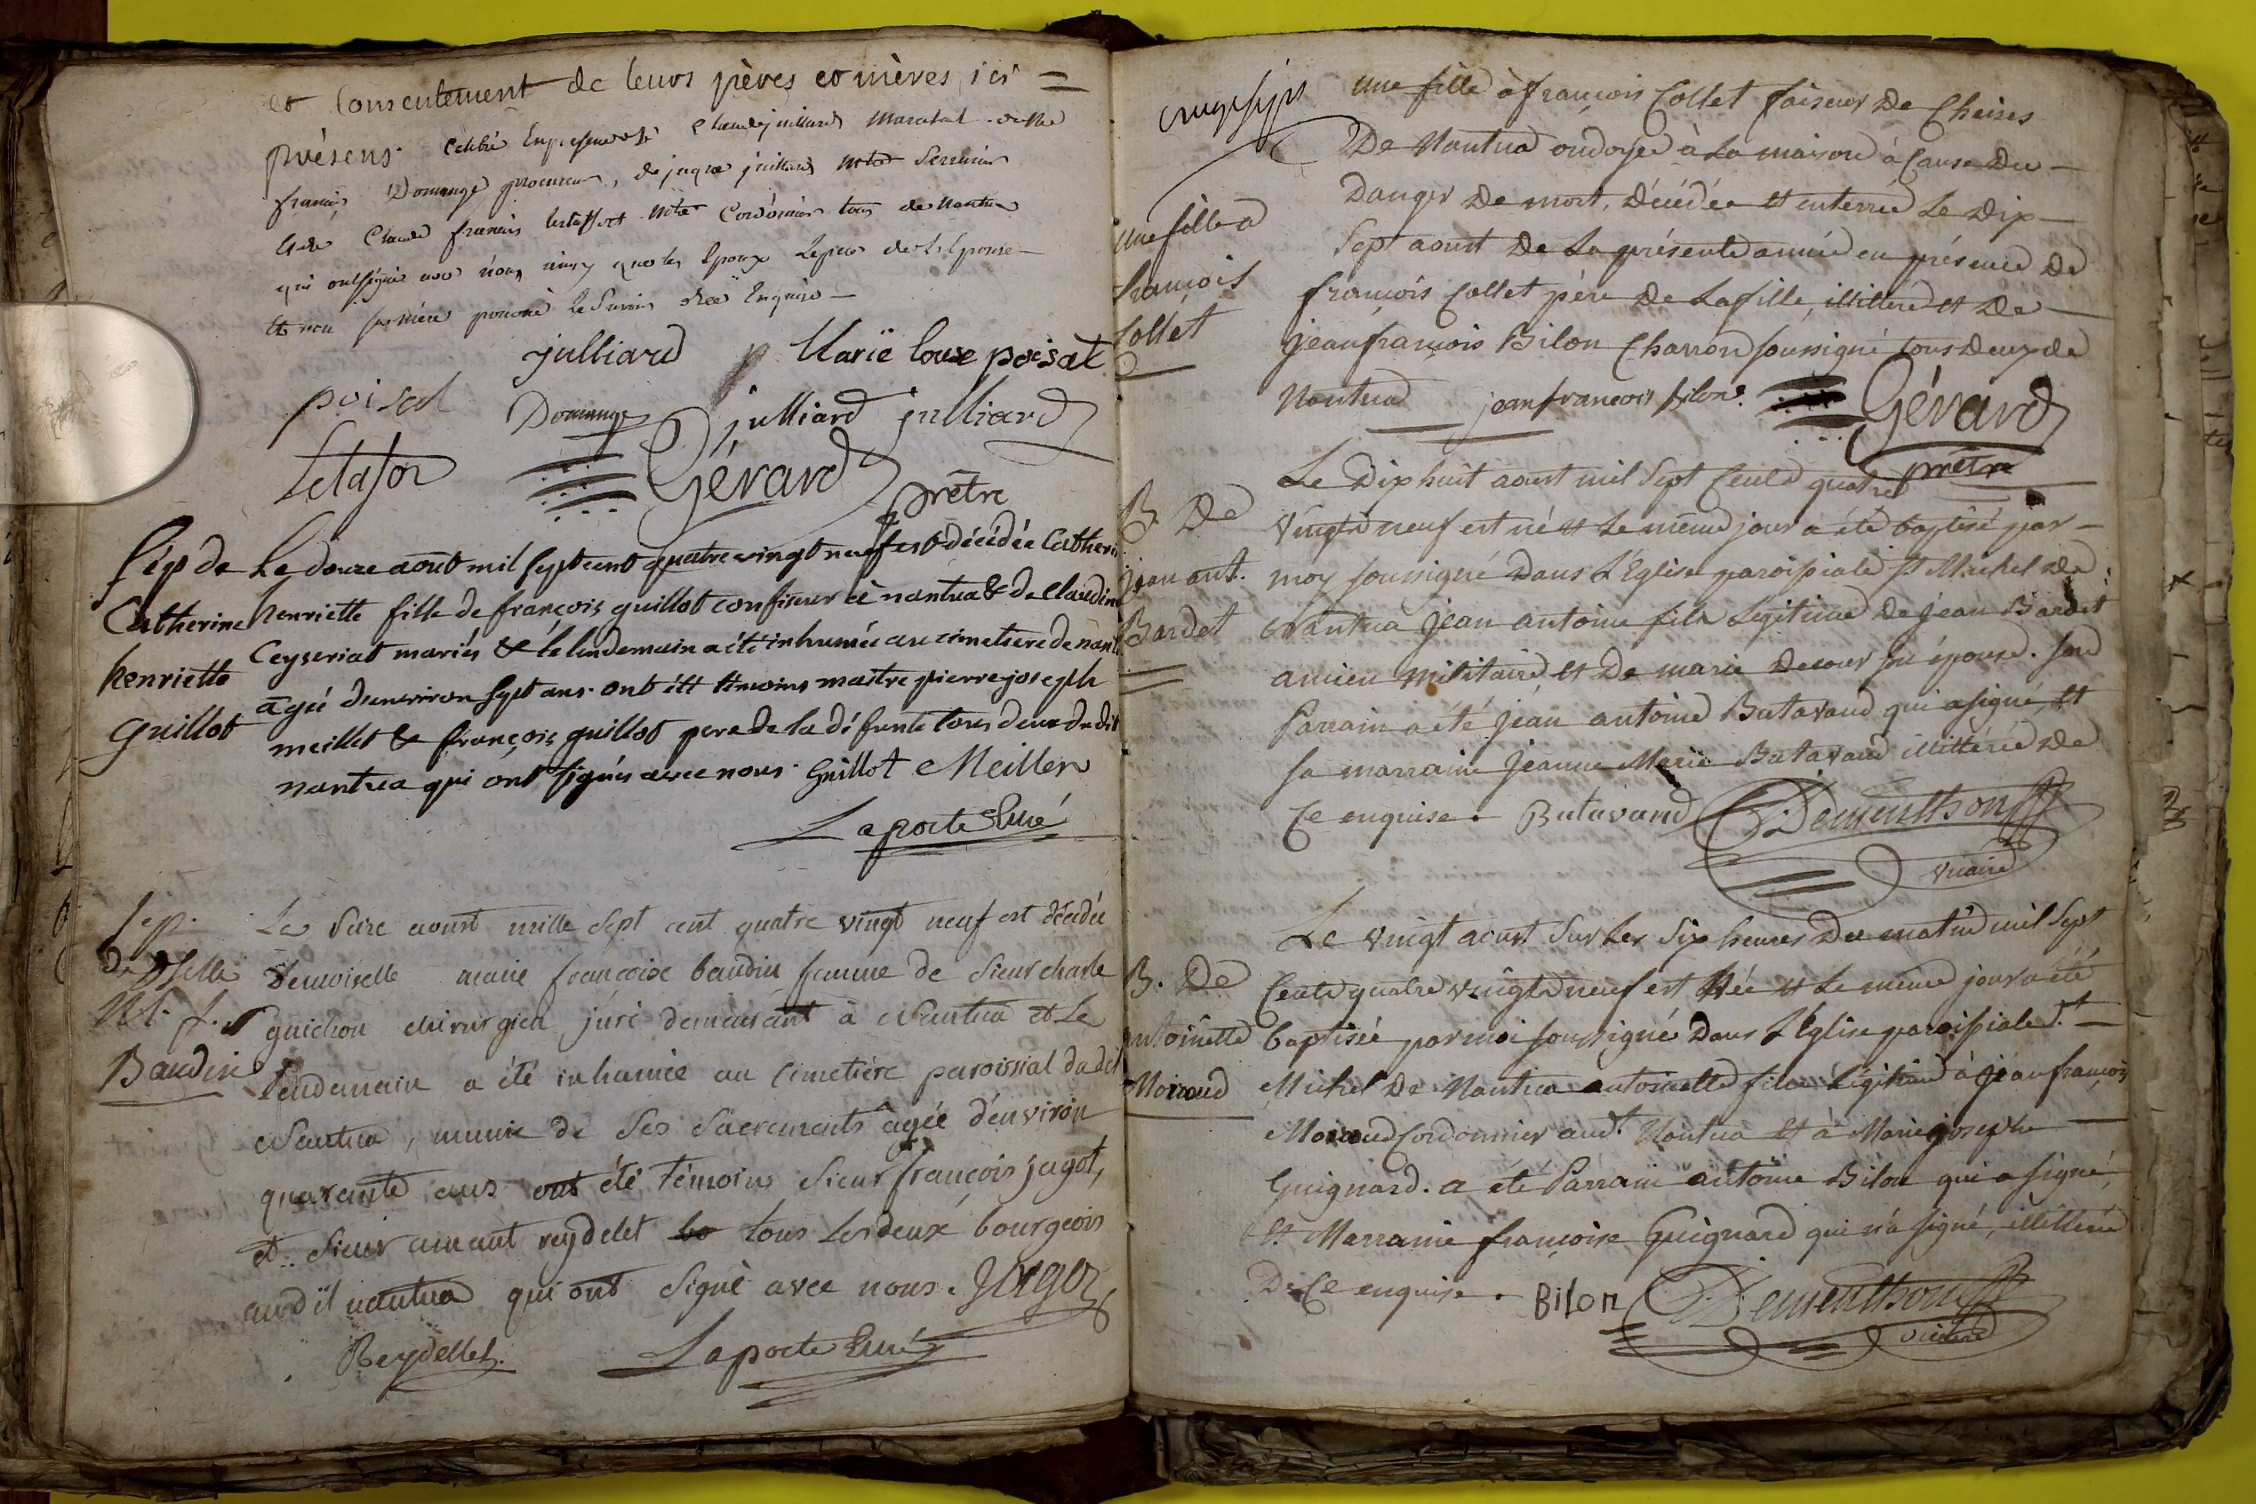 et consentement de leurs pères et mères, ici =
présens. Célébré En présence de Claude juillard Maréchal
francois Domange procureur, de jaque juillard Serrurier
Claude francois Cordonnier tous de nantua
qui ont signé avec nous, ainsy que les Epoux Le pere de L'Epouse
Et non sa mère pour ne le Savoir Enquise —
julliard p Marie louse poisat
poisat Domange julliard julliard
Letafor Gérard prêtre
Sép de
Catherine
henriette
guillot
Le douze aout mil sept cent quatre vingt neuf est décédée Catherine
henriette fille de françois guillot confiseur à nantua & de Claudine
Ceyseriat mariés & le lendemain a été inhumée au cimetiere de nantua
agé d'environ sept ans. ont été témoins maitre pierre joseph
meillet & françois guillot pere de la défunte tous deux dudit
nantua qui ont signés avec nous. Guillot Meiller
Laporte Curé
Sep.
De Dslle
M. f.
Baudin
Le Seize aoust mille sept cent quatre vingt neuf est décédée
demoiselle marie françoise baudin femme de Sieur charle
guichon chirurgien juré demeurant à Nantua et Le
lendemain a été inhumée au Cimetière paroissial dudit
Nantua, munie de Ses Sacrements âgée d'environ
quarante ans ont été témoins Sieur françois jagot,
et Sieur aimant reydelet bo tous les deux bourgeois
audit nantua qui ont Signé avec nous. Jagot
Reydellet. Laporte Curé
une fille à françois Collet faiseur De Cheises
De Nantua ondoyée à La maison à Cause Du —
Danger De mort, Décédée et enterrée Le Dix —
Sept aoust De La présente année en présence De
françois Collet père De La fille, illittéré et De —
jean françois Bilon Charron soussigné tous Deux de
Nantua jean francois bilon. Gérard
prêtre
une fille à
françois
Collet
B. De
jean ant.
Bardet
Le Dix huit aoust mil Sept Cents quatre
Vingts neuf est né et Le même jour a été baptisé par —
moy soussigné Dans L'Eglise paroissiale St Michel De
Nantua jean antoine fils Légitime De jean Bardet
ancien militaire et De marie Decour son épouse. Son
Parrain a été jean antoine Batavaud qui a signé, et
sa marraine jeanne Marie Batavaud illittérée De
Ce enquise. Batavand Dementhon
vicaire
B. De
antoinette
Moiroud
Le vingt aoust Sur Les Six heures Du matin mil Sept
Cents quatre vingts neuf est Née et Le même jour a été
baptisée par moi soussigné Dans L'Église paroissiale St —
Michel De Nantua antoinette fille Légitime à jean françois
Moiroud Cordonnier aud.t Nantua et à Marie joseph —
Guignard. a été Parrain antoine Bilon qui a signé,
et Marraine françoise Guignard qui n'a signé, illittérée
De Ce enquise. Bilon Dementhon
vicaire